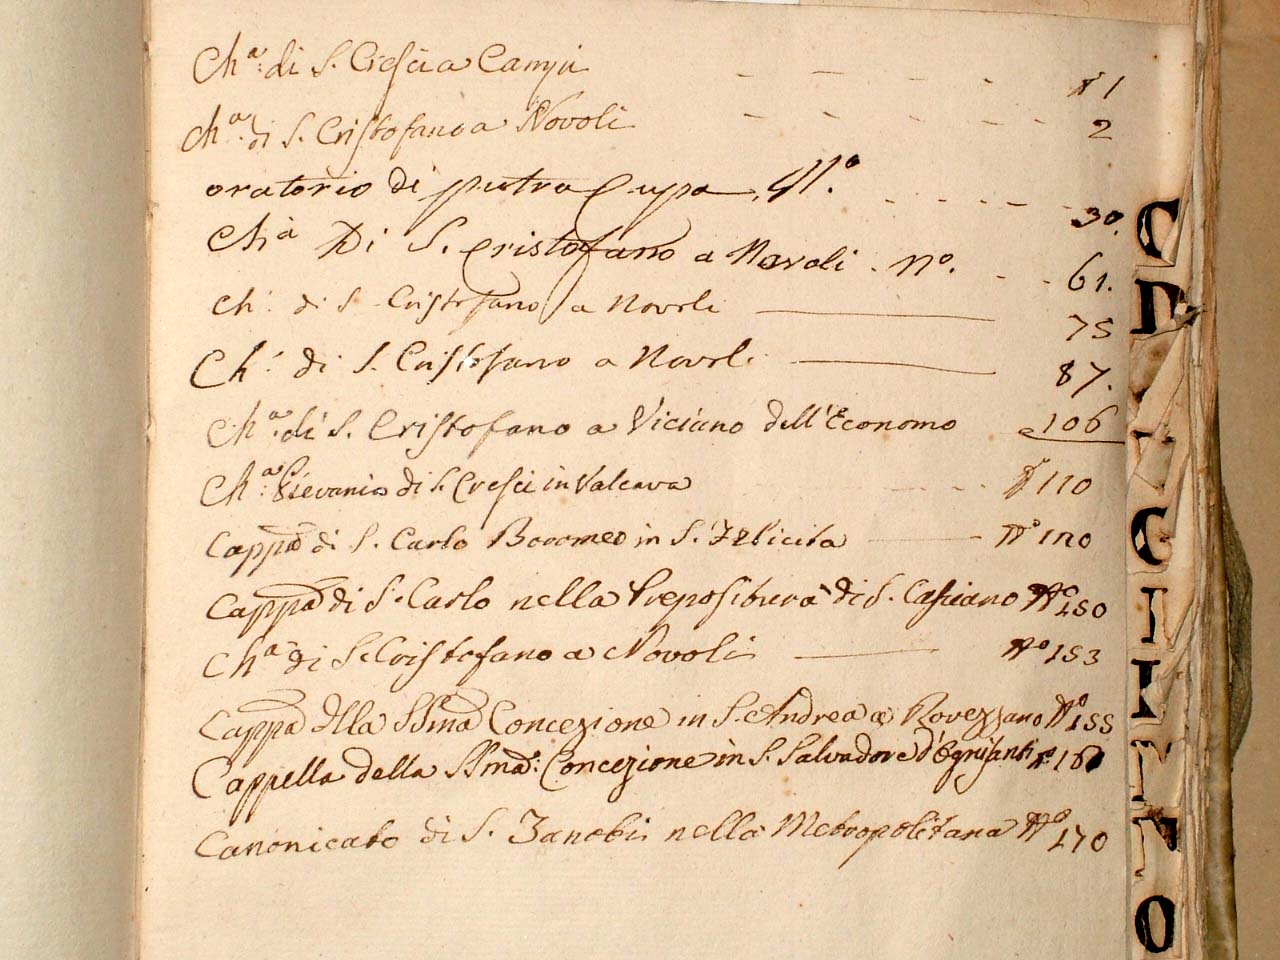 Ch.ª di S. Cresci a Campi N 1
Ch.ª di S. Cristofano a Novoli 2
oratorio di pietra Cupa N.º 30.
Chiª Di S. Cristofano a Novoli . N.º 61.
Ch. di S. Cristofano a Novoli 75
Ch. di S. Cristofano a Novoli 87.
Ch.ª di S. Cristofano a Viciano dell'Economo 106
Ch.ª Pievania di S. Cresci in Valcava N 110
Cappª di S. Carlo Boromeo in S. Felicita Nº 120
Cappª di S. Carlo nella Prepositura di S. Casciano Nº 150
Chª di S. Cristofano a Novoli Nº 153
Cappª della SSma Concezione in S. Andrea a Rovezzano Nº 155
Cappella della SSma: Concezione in S. Salvadore d'Ognisanti
Canonicato di S. Zanobi nella Metropolitana Nº 170
C
D
E
I
O